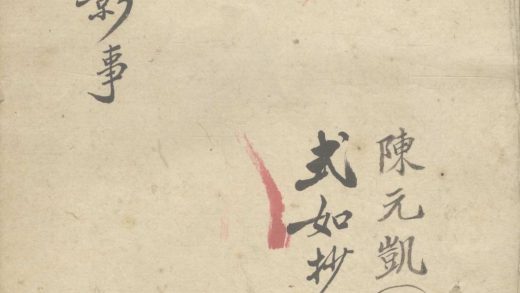 陳元凱
式如抄
影事